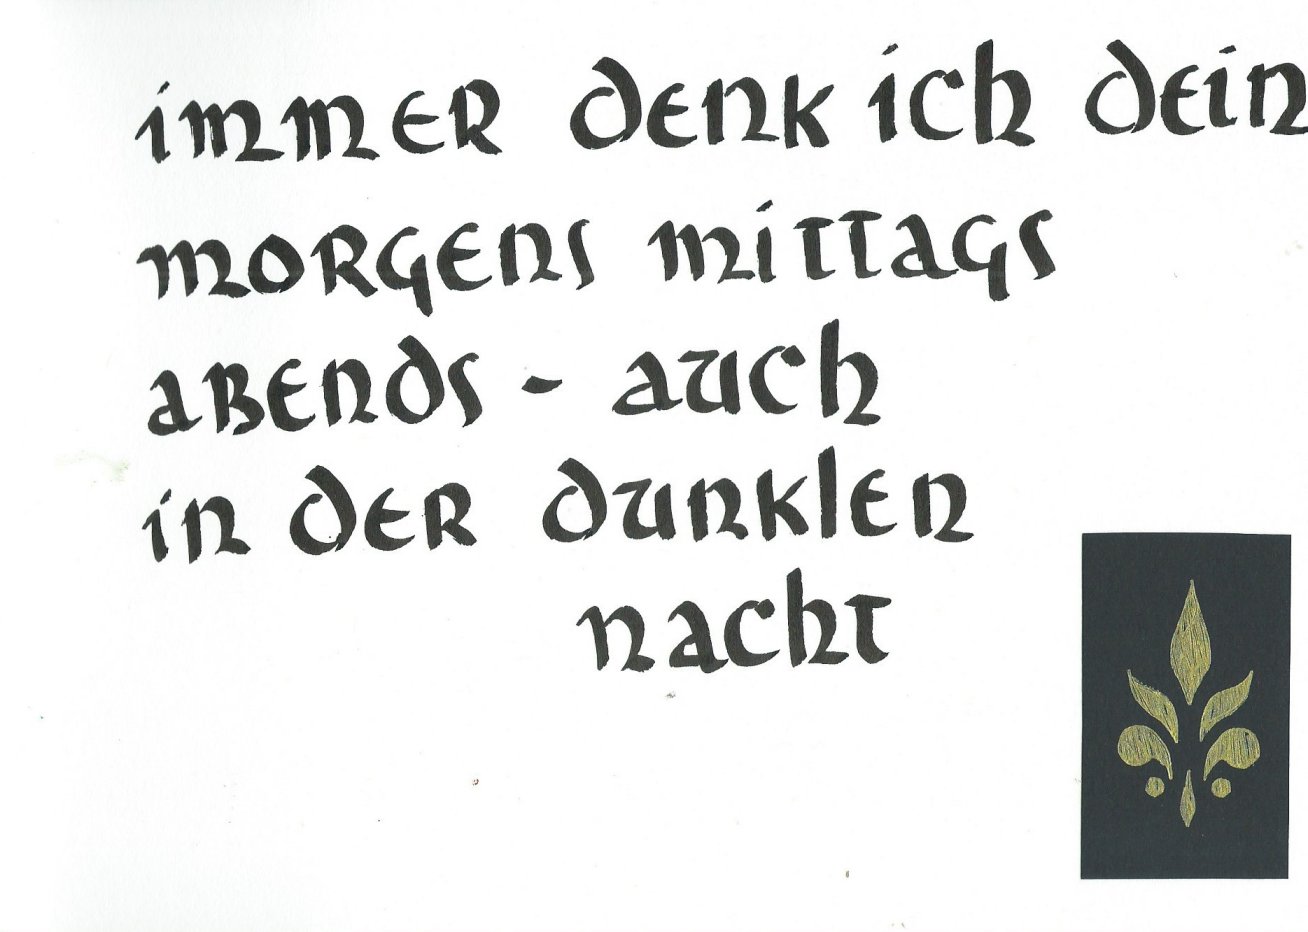 immer denk ich dein
morgens mittags
abends - auch
in der dunklen
nacht